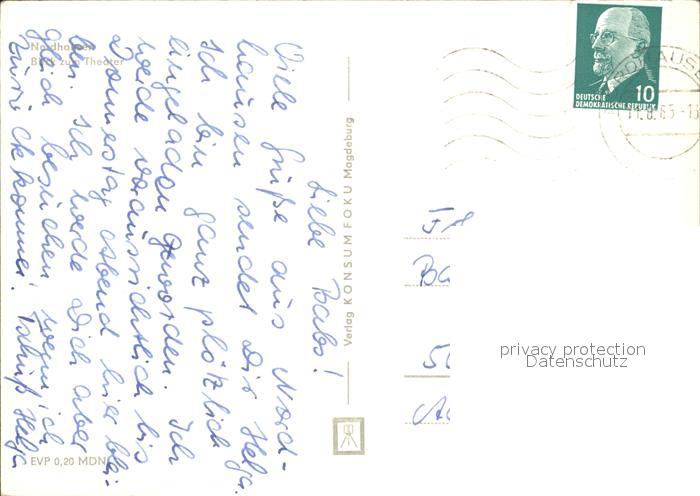 Nordhausen
Blick zum Theater
Liebe Babs!
Viele Grüße aus Nord-
hausen sendet Dir Helga.
Ich bin ganz plötzlich
eingeladen geworden. Ich
werde voraussichtlich bis
Donnerstag abend hier blei-
ben. Ich werde Dich aber
gleich besuchen wenn ich
zurückkomme! Tschüß Helga
EVP 0,20 MDN
Verlag KONSUM FOKU Magdeburg
DEUTSCHE
DEMOKRATISCHE REPUBLIK
10
privacy protection
Datenschutz